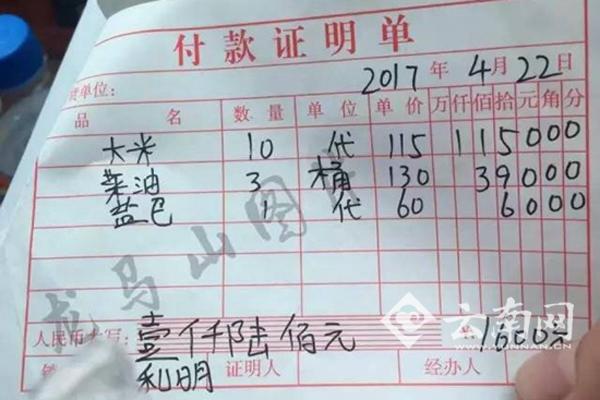 付款证明单
贷单位： 2017年4月22日
品名 数量 单位 单价 万仟佰拾元角分
大米 10 代 115 115000
菜油 3 桶 130 39000
盐巴 1 代 60 6000
龙马山图片
人民币大写：壹仟陆佰元 1600元
利明 证明人 经办人
云南网
YUNNAN.CN